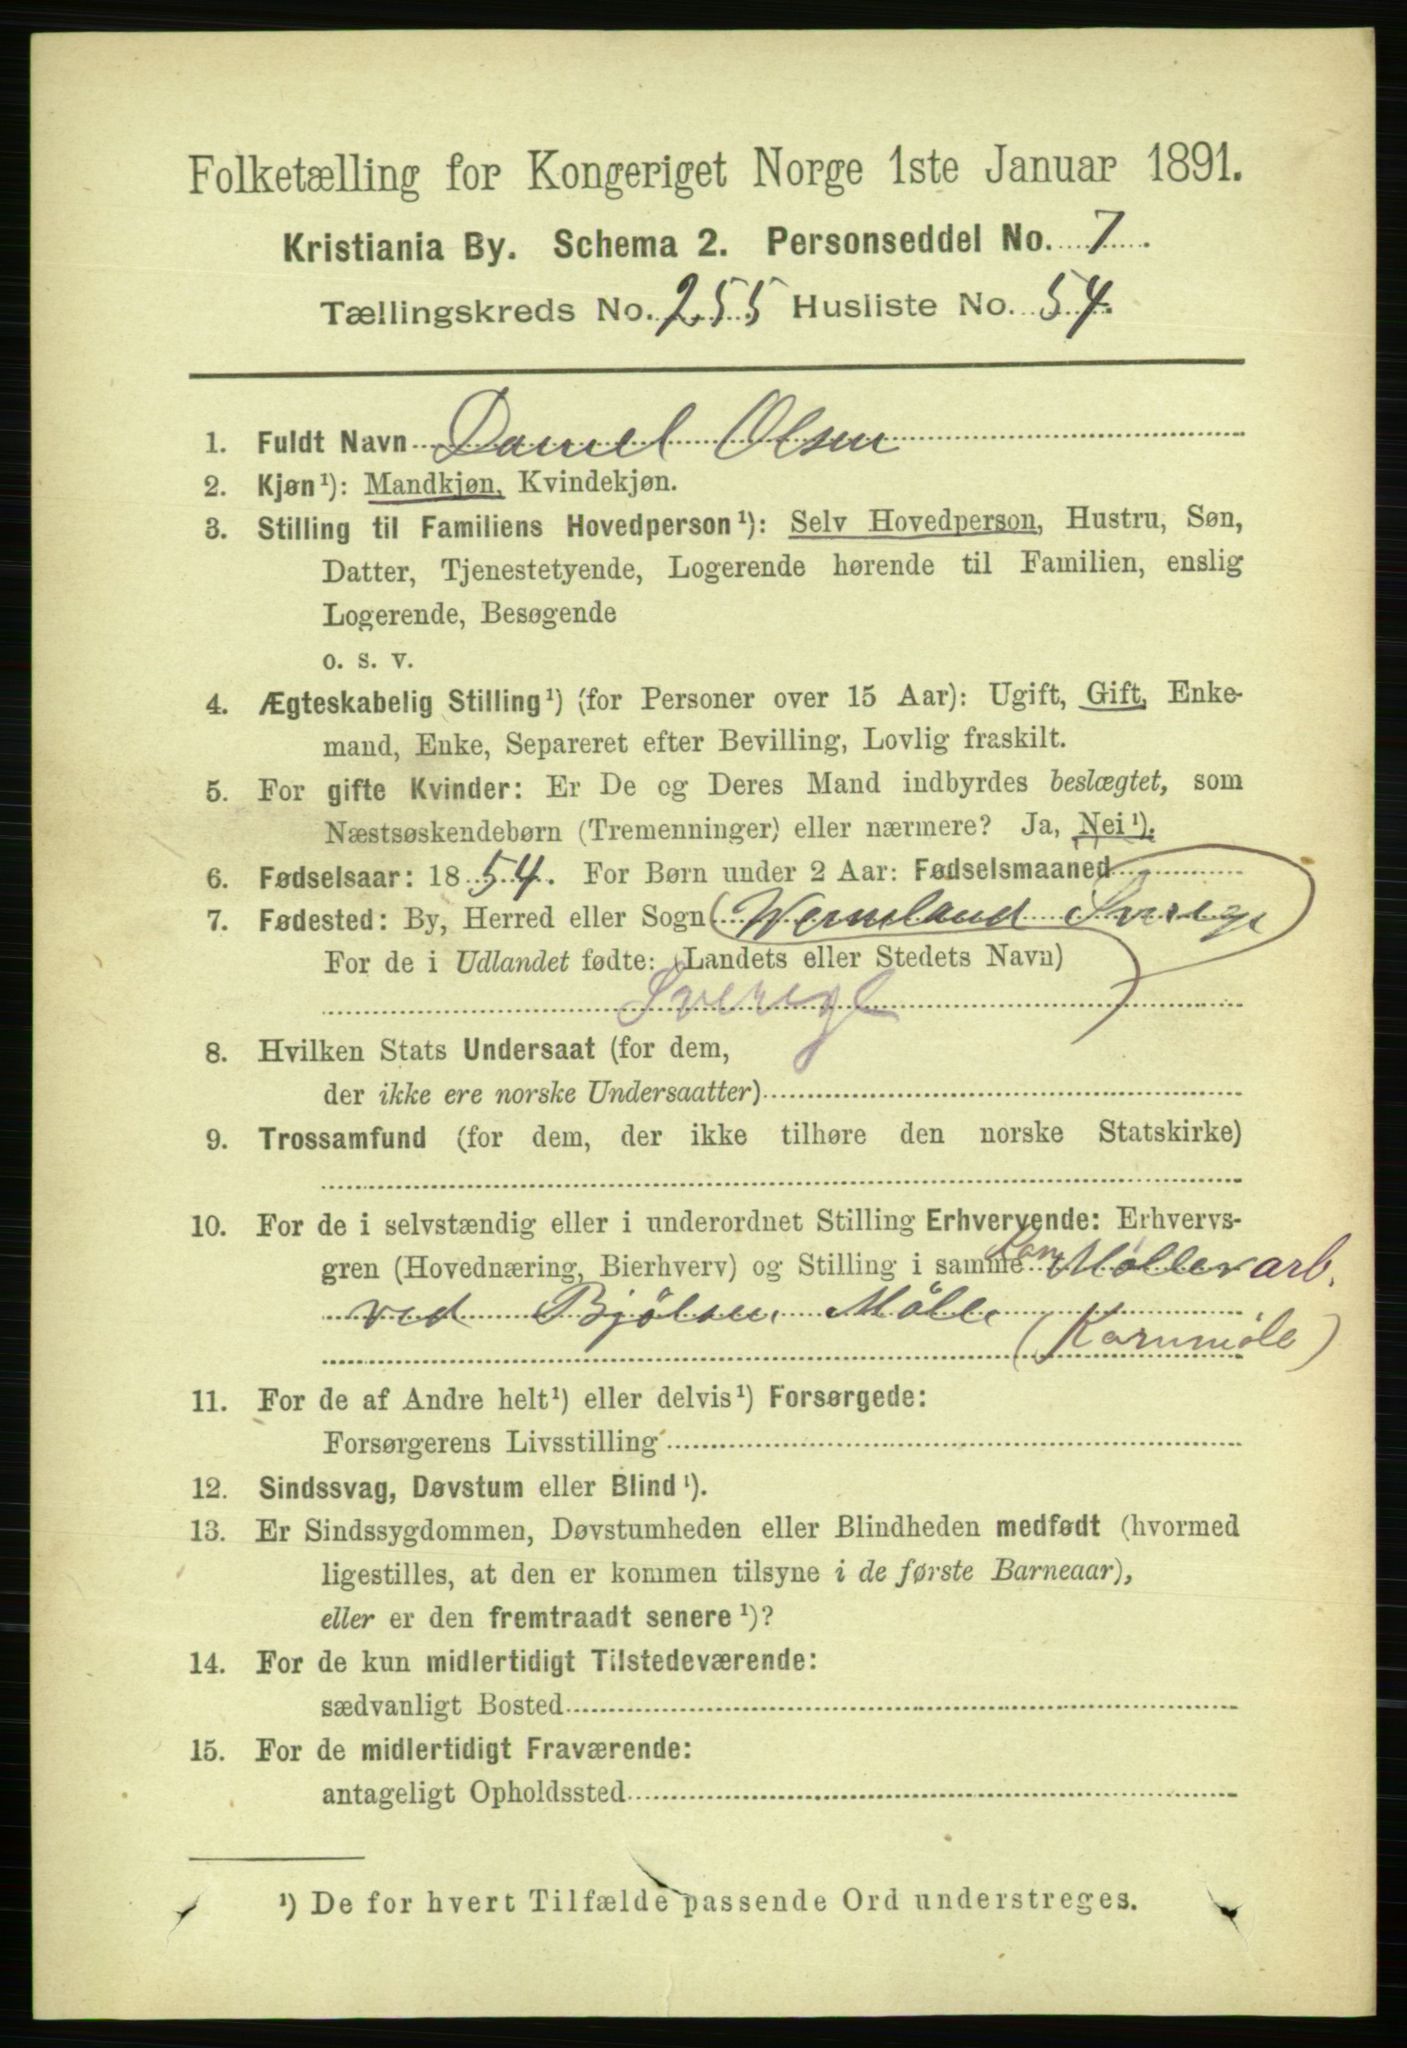 Folketælling for Kongeriget Norge 1ste Januar 1891.
Kristiania By. Schema 2. Personseddel No. 7.
Tællingskreds No. 255 Husliste No. 54.
1. Fuldt Navn Daniel Olsen
2. Kjøn¹): Mandkjøn, Kvindekjøn.
3. Stilling til Familiens Hovedperson¹): Selv Hovedperson, Hustru, Søn,
Datter, Tjenestetyende, Logerende hørende til Familien, enslig
Logerende, Besøgende
o. s. v.
4. Ægteskabelig Stilling¹) (for Personer over 15 Aar): Ugift, Gift, Enke-
mand, Enke, Separeret efter Bevilling, Lovlig fraskilt.
5. For gifte Kvinder: Er De og Deres Mand indbyrdes beslægtet, som
Næstsøskendebørn (Tremenninger) eller nærmere? Ja, Nei¹).
6. Fødselsaar: 1854. For Børn under 2 Aar: Fødselsmaaned
7. Fødested: By, Herred eller Sogn (Wermland Sverige
For de i Udlandet fødte: (Landets eller Stedets Navn)
Sverige
8. Hvilken Stats Undersaat (for dem,
der ikke ere norske Undersaatter)
9. Trossamfund (for dem, der ikke tilhøre den norske Statskirke)
10. For de i selvstændig eller i underordnet Stilling Erhvervende: Erhvervs-
gren (Hovednæring, Bierhverv) og Stilling i samme Møllerarb.
ved Bjölsen Mölle
(Kornmöle)
11. For de af Andre helt¹) eller delvis¹) Forsørgede:
Forsørgerens Livsstilling
12. Sindssvag, Døvstum eller Blind¹).
13. Er Sindssygdommen, Døvstumheden eller Blindheden medfødt (hvormed
ligestilles, at den er kommen tilsyne i de første Barneaar),
eller er den fremtraadt senere¹)?
14. For de kun midlertidigt Tilstedeværende:
sædvanligt Bosted
15. For de midlertidigt Fraværende:
antageligt Opholdssted
¹) De for hvert Tilfælde passende Ord understreges.